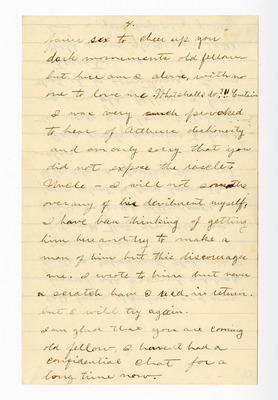 4.
sex to cheer up your
dark moments old fellow
but here am I alone, with no
one to love me. What shall I do?!!
I was very much provoked
to hear of Arthurs dishonesty
and am only sorry that you
did not expose the rascal to
Uncle – I will not
over any of his devilment myself,
I have been thinking of getting
him here and try to make a
man of him but this discourages
me. I wrote to him but never
a scratch have I rec'd in return.
but I will try again.
I am glad that you are coming
old fellow, I haven't had a
confidential chat for a
long time now.